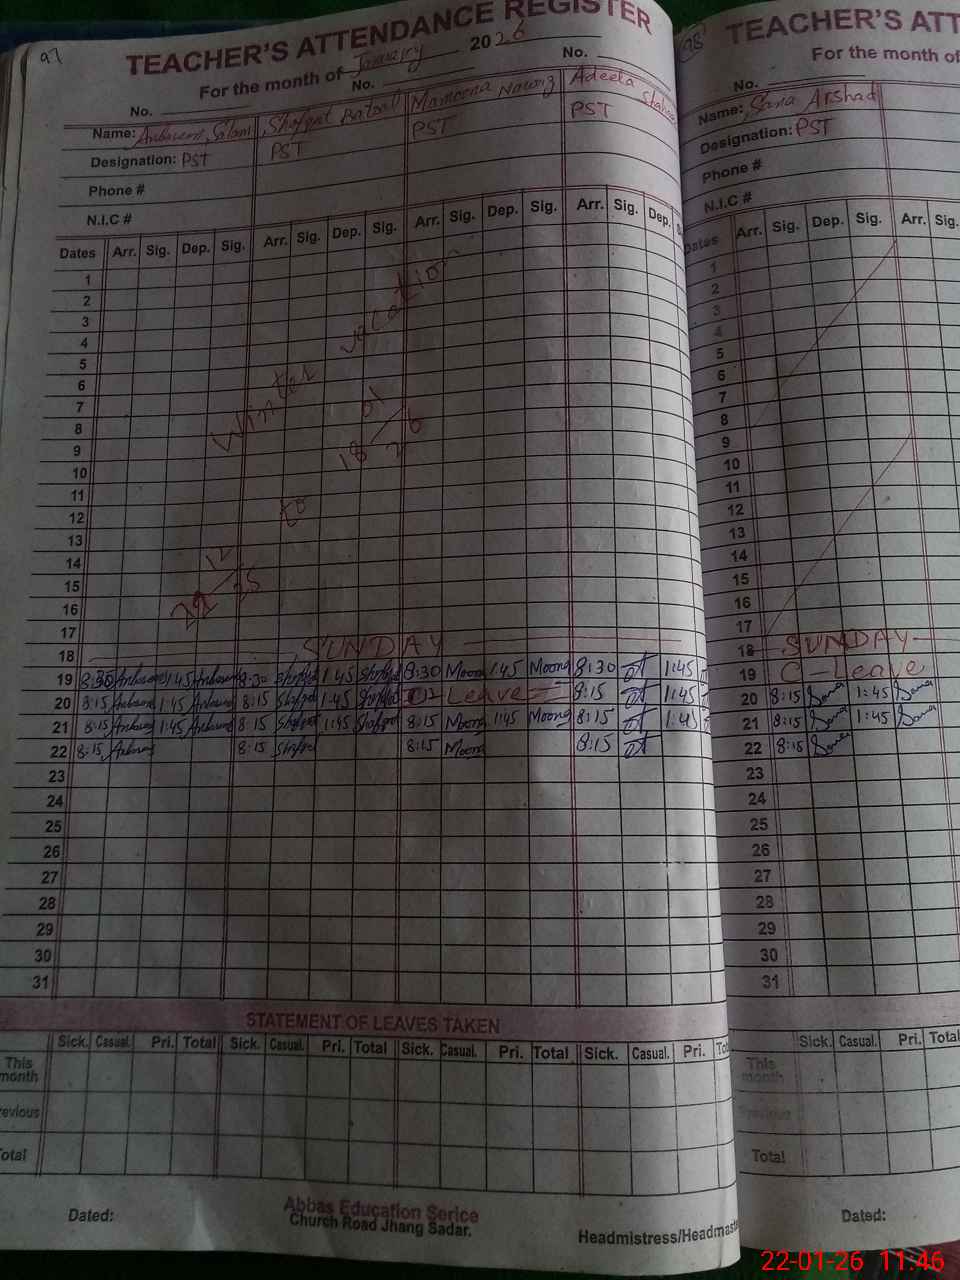 97
TEACHER'S ATTENDANCE REGISTER
For the month of January 2026
No. No. No.
Name: Shafqat Batool Mamoona Nawaz Adeela
Designation: PST PST PST PST
Phone #
N.I.C #
Dates Arr. Sig. Dep. Sig. Arr. Sig. Dep. Sig. Arr. Sig. Dep. Sig. Arr. Sig. Dep.
1
2
3
4
5
6
7
8
9
10
11
12
13
14
15
16
17
Winter vacation
22 12 25 to 18 01 26
18 SUNDAY
19 8:30 1:45 8:30 Shafqat 1:45 Shafqat 8:30 Moona 1:45 Moona 8:30 1:45
20 8:15 1:45 8:15 Shafqat 1:45 Shafqat C-Leave 8:15 1:45
21 8:15 1:45 8:15 Shafqat 1:45 Shafqat 8:15 Moona 1:45 Moona 8:15 1:45
22 8:15 8:15 Shafqat 8:15 Moona 8:15
23
24
25
26
27
28
29
30
31
STATEMENT OF LEAVES TAKEN
Sick. Casual. Pri. Total Sick. Casual. Pri. Total Sick. Casual. Pri. Total Sick. Casual. Pri. Tot
This month
revious
otal
Dated:
Abbas Education Serice
Church Road Jhang Sadar.
Headmistress/Headmaste
98
TEACHER'S ATT
For the month of
No.
Name: Sana Arshad
Designation: PST
Phone #
N.I.C #
Dates Arr. Sig. Dep. Sig. Arr. Sig.
1
2
3
4
5
6
7
8
9
10
11
12
13
14
15
16
17
18 SUNDAY
19 C-Leave
20 8:15 Sana 1:45 Sana
21 8:15 Sana 1:45 Sana
22 8:15 Sana
23
24
25
26
27
28
29
30
31
Sick. Casual. Pri. Total
This month
Previous
Total
Dated:
22-01-26 11:46